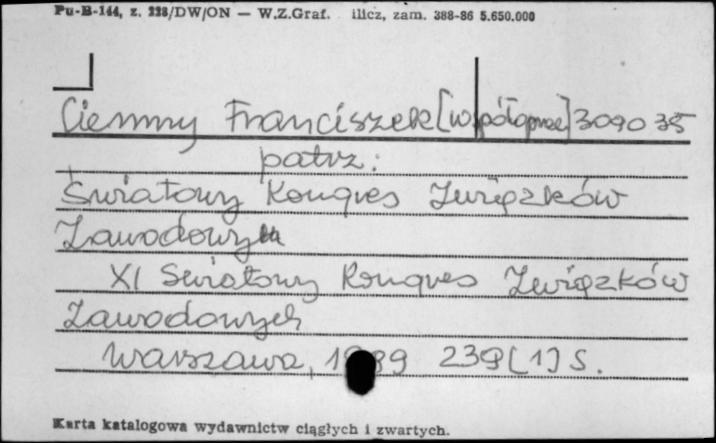 Pu-B-144, z. 228/DW/ON — W.Z.Graf. ilicz, zam. 388-86 5.650.000
Ciemny Franciszek [współoprac] 309035
patrz:
Światowy Kongres Związków
Zawodowych
XI Światowy Kongres Związków
Zawodowych
Warszawa, 1989 239 [1] S.
Karta katalogowa wydawnictw ciągłych i zwartych.